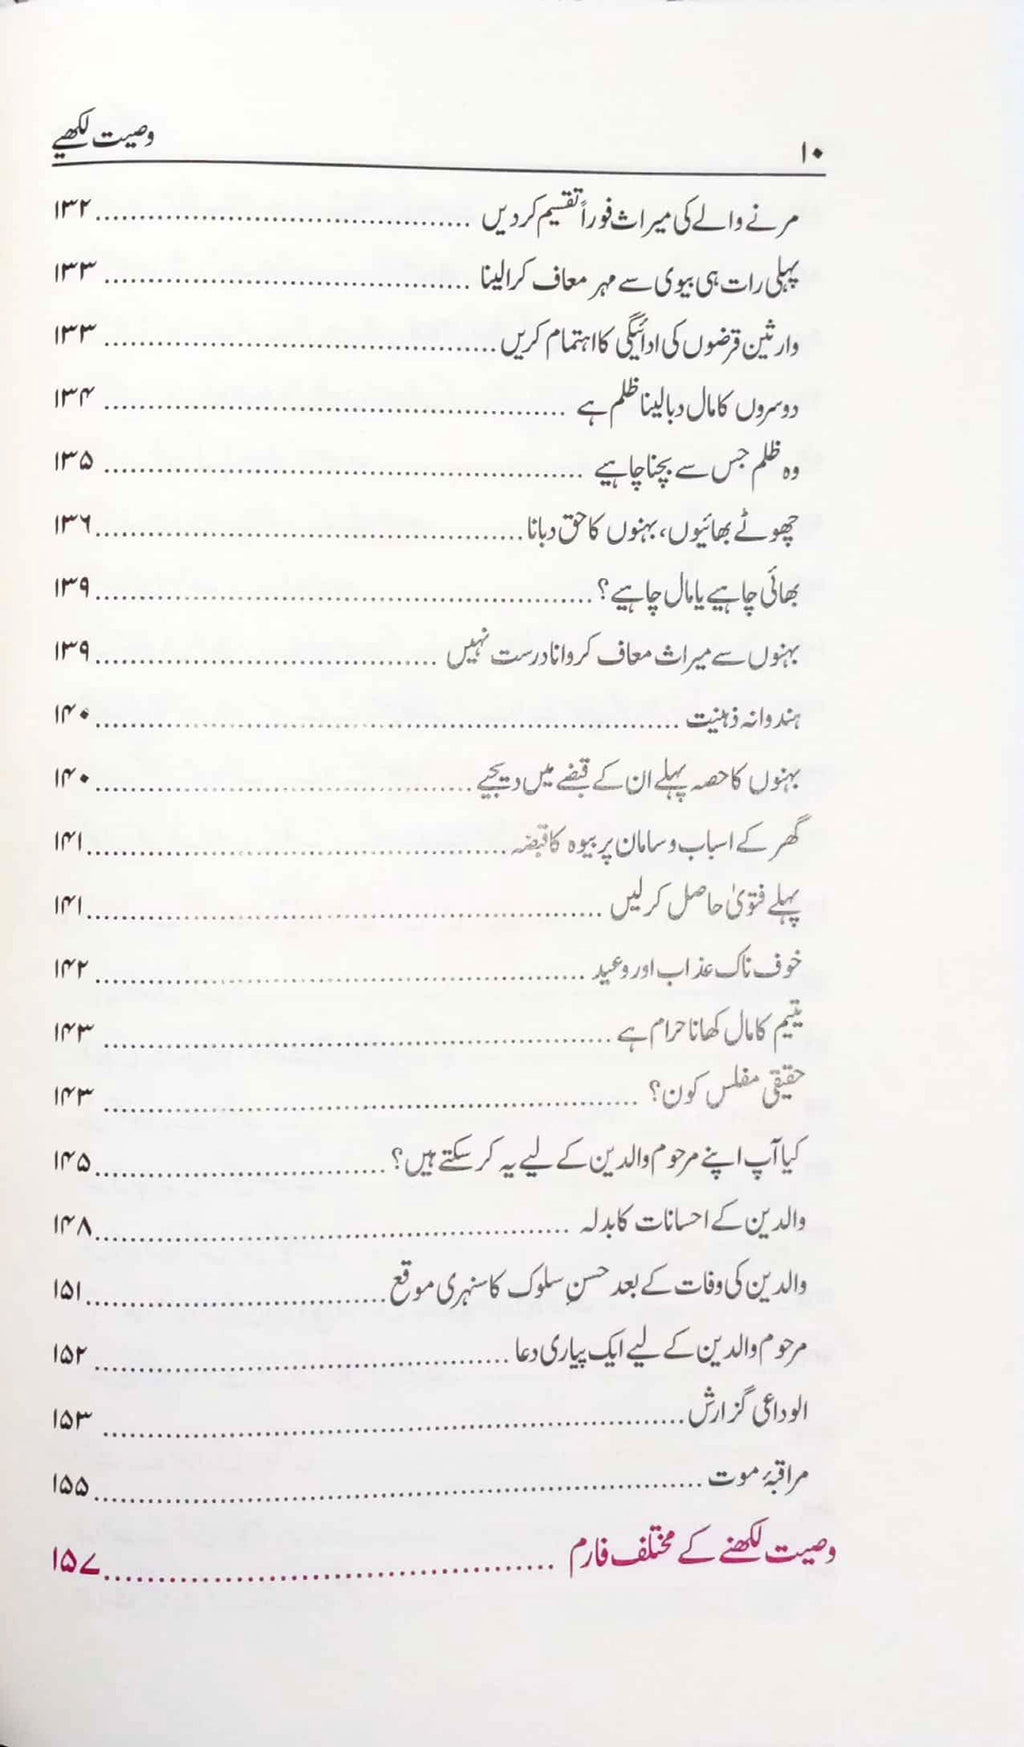 ۱۰ وصیت لکھیے
مرنے والے کی میراث فوراً تقسیم کردیں ........ ۱۳۲
پہلی رات ہی بیوی سے مہر معاف کرالینا ........ ۱۳۳
وارثین قرضوں کی ادائیگی کا اہتمام کریں ........ ۱۳۳
دوسروں کا مال دبالینا ظلم ہے ........ ۱۳۴
وہ ظلم جس سے بچنا چاہیے ........ ۱۳۵
چھوٹے بھائیوں، بہنوں کا حق دبانا ........ ۱۳۶
بھائی چاہیے یا مال چاہیے؟ ........ ۱۳۹
بہنوں سے میراث معاف کروانا درست نہیں ........ ۱۳۹
ہندوانہ ذہنیت ........ ۱۴۰
بہنوں کا حصہ پہلے ان کے قبضے میں دیجیے ........ ۱۴۰
گھر کے اسباب و سامان پر بیوہ کا قبضہ ........ ۱۴۱
پہلے فتویٰ حاصل کرلیں ........ ۱۴۱
خوف ناک عذاب اور وعید ........ ۱۴۲
یتیم کا مال کھانا حرام ہے ........ ۱۴۳
حقیقی مفلس کون؟ ........ ۱۴۳
کیا آپ اپنے مرحوم والدین کے لیے یہ کرسکتے ہیں؟ ........ ۱۴۵
والدین کے احسانات کا بدلہ ........ ۱۴۸
والدین کی وفات کے بعد حسنِ سلوک کا سنہری موقع ........ ۱۵۱
مرحوم والدین کے لیے ایک پیاری دعا ........ ۱۵۲
الوداعی گزارش ........ ۱۵۳
مراقبۂ موت ........ ۱۵۵
وصیت لکھنے کے مختلف فارم ........ ۱۵۷